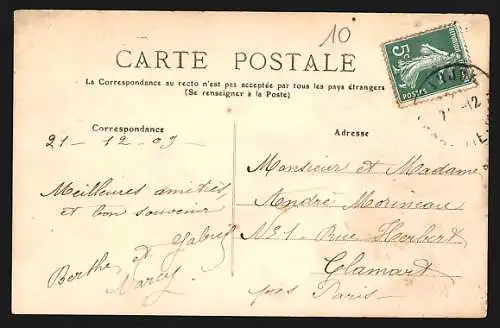 10
CARTE POSTALE
5c
POSTES
La Correspondance au recto n'est pas acceptée par tous les pays étrangers
(Se renseigner à la Poste)
Correspondance
21 - 12 - 09
Meilleures amitiés,
et bon souvenir
Berthe et Gabriel
Marcy
Adresse
Monsieur et Madame
André Morineau
No 1 - Rue Herbert
Clamart
près Paris